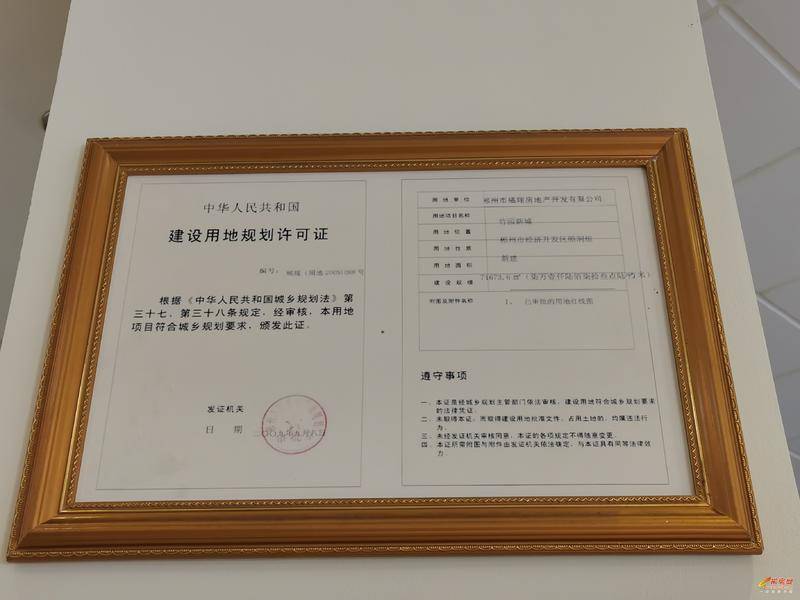 中华人民共和国
建设用地规划许可证
编号：
根据《中华人民共和国城乡规划法》第
三十七、第三十八条规定，经审核，本用地
项目符合城乡规划要求，颁发此证。
发证机关
日 期 二〇〇九年九月八日
用地单位 郴州市 房地产开发有限公司
用地项目名称 新城
用地位置 郴州市经济开发区
用地性质 新建
用地面积 71673.6㎡
建设规模
附图及附件名称 1、已审批的用地红线图
遵守事项
一、本证是经城乡规划主管部门依法审核，建设用地符合城乡规划要求
的法律凭证。
二、未取得本证，而取得建设用地批准文件、占用土地的，均属违法行
为。
三、未经发证机关审核同意，本证的各项规定不得随意变更。
四、本证所需附图与附件由发证机关依法确定，与本证具有同等法律效
力。